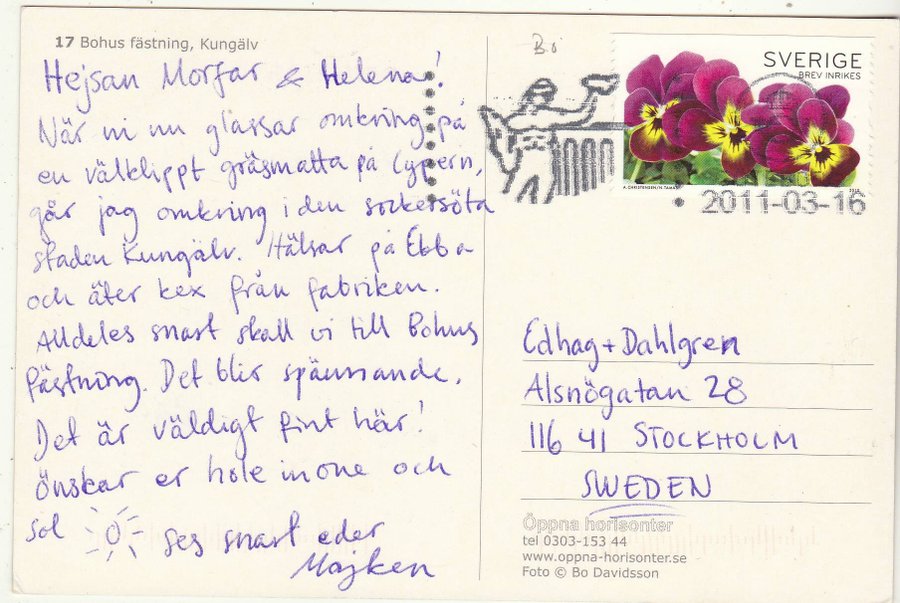 17 Bohus fästning, Kungälv
Hejsan Morfar & Helena!
När ni nu glassar omkring på
en välklippt gräsmatta på Cypern,
går jag omkring i den sockersöta
staden Kungälv. Hälsar på Ebba
och äter kex från fabriken.
Alldeles snart skall vi till Bohus
fästning. Det blir spännande.
Det är väldigt fint här!
önskar er hole in one och
sol ses snart eder
Majken
Bo
SVERIGE
BREV INRIKES
A. CHRISTENSEN/N. TAMAS
2011-03-16
Edhag + Dahlgren
Alsnögatan 28
116 41 STOCKHOLM
SWEDEN
Öppna horisonter
tel 0303-153 44
www.oppna-horisonter.se
Foto © Bo Davidsson